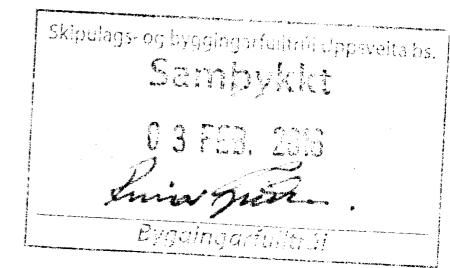 Skipulags- og byggingarfulltrúi Uppsveita bs.
Samþykkt
03 FEB. 2016
Byggingarfulltrúi